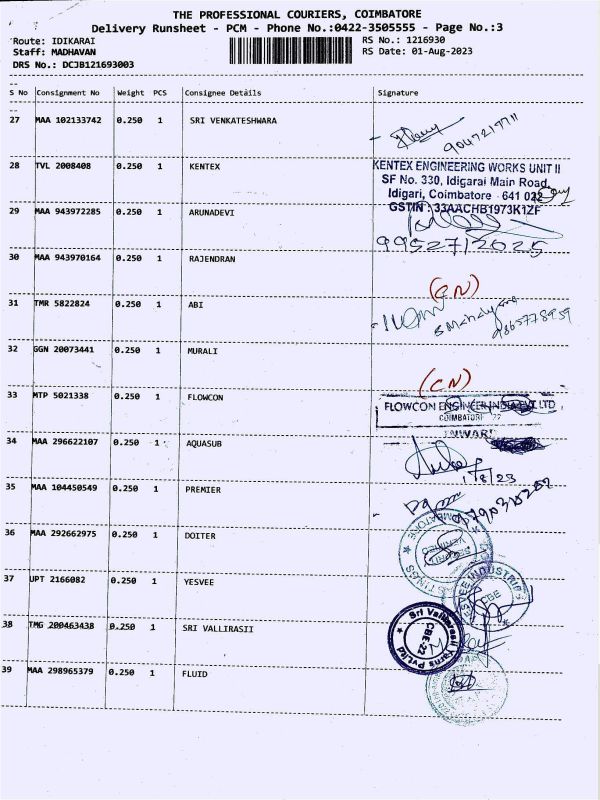 THE PROFESSIONAL COURIERS, COIMBATORE
Delivery Runsheet - PCM - Phone No.:0422-3505555 - Page No.:3
Route: IDIKARAI RS No.: 1216930
Staff: MADHAVAN RS Date: 01-Aug-2023
DRS No.: DCJB121693003
S No Consignment No Weight PCS Consignee Details Signature
27 MAA 102133742 0.250 1 SRI VENKATESHWARA
9047217711
28 TVL 2008408 0.250 1 KENTEX
KENTEX ENGINEERING WORKS UNIT II
SF No. 330, Idigarai Main Road,
Idigari, Coimbatore - 641 022
GSTIN : 33AACHB1973K1ZF
29 MAA 943972285 0.250 1 ARUNADEVI
9952712025
30 MAA 943970164 0.250 1 RAJENDRAN
(CN)
31 TMR 5822824 0.250 1 ABI
9865778959
32 GGN 20073441 0.250 1 MURALI
(CN)
33 MTP 5021338 0.250 1 FLOWCON
FLOWCON ENGINEER INDIA PVT LTD
COIMBATORE
34 MAA 296622107 0.250 1 AQUASUB
1/8/23
35 PREMIER MAA 104450549 0.250 1
36 MAA 292662975 0.250 1 DOITER
37 UPT 2166082 0.250 1 YESVEE
INDUSTRIES
CBE
38 TMG 200463438 0.250 1 SRI VALLIRASII
Sri Vallirasii Yarns Pvt.Ltd
CBE-22
39 MAA 298965379 0.250 1 FLUID